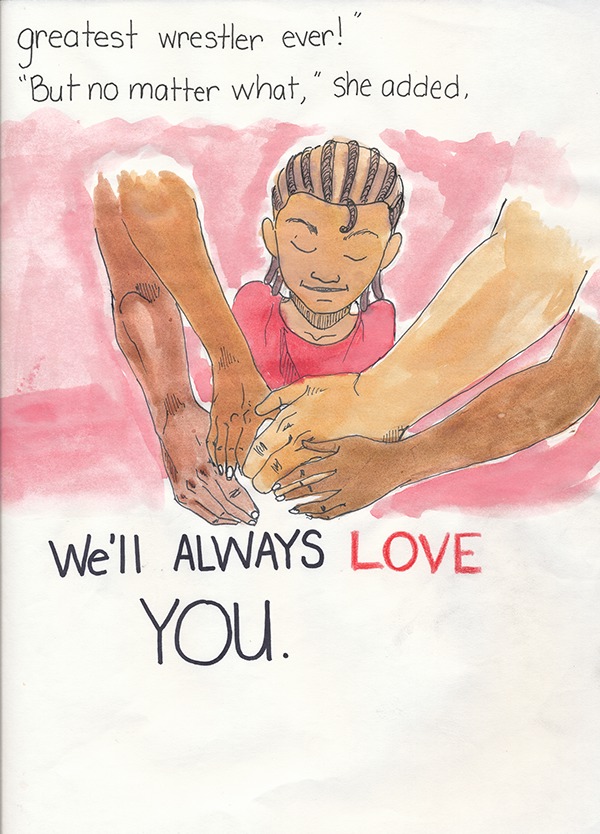 greatest wrestler ever!"
"But no matter what," she added,
We'll ALWAYS LOVE
YOU.